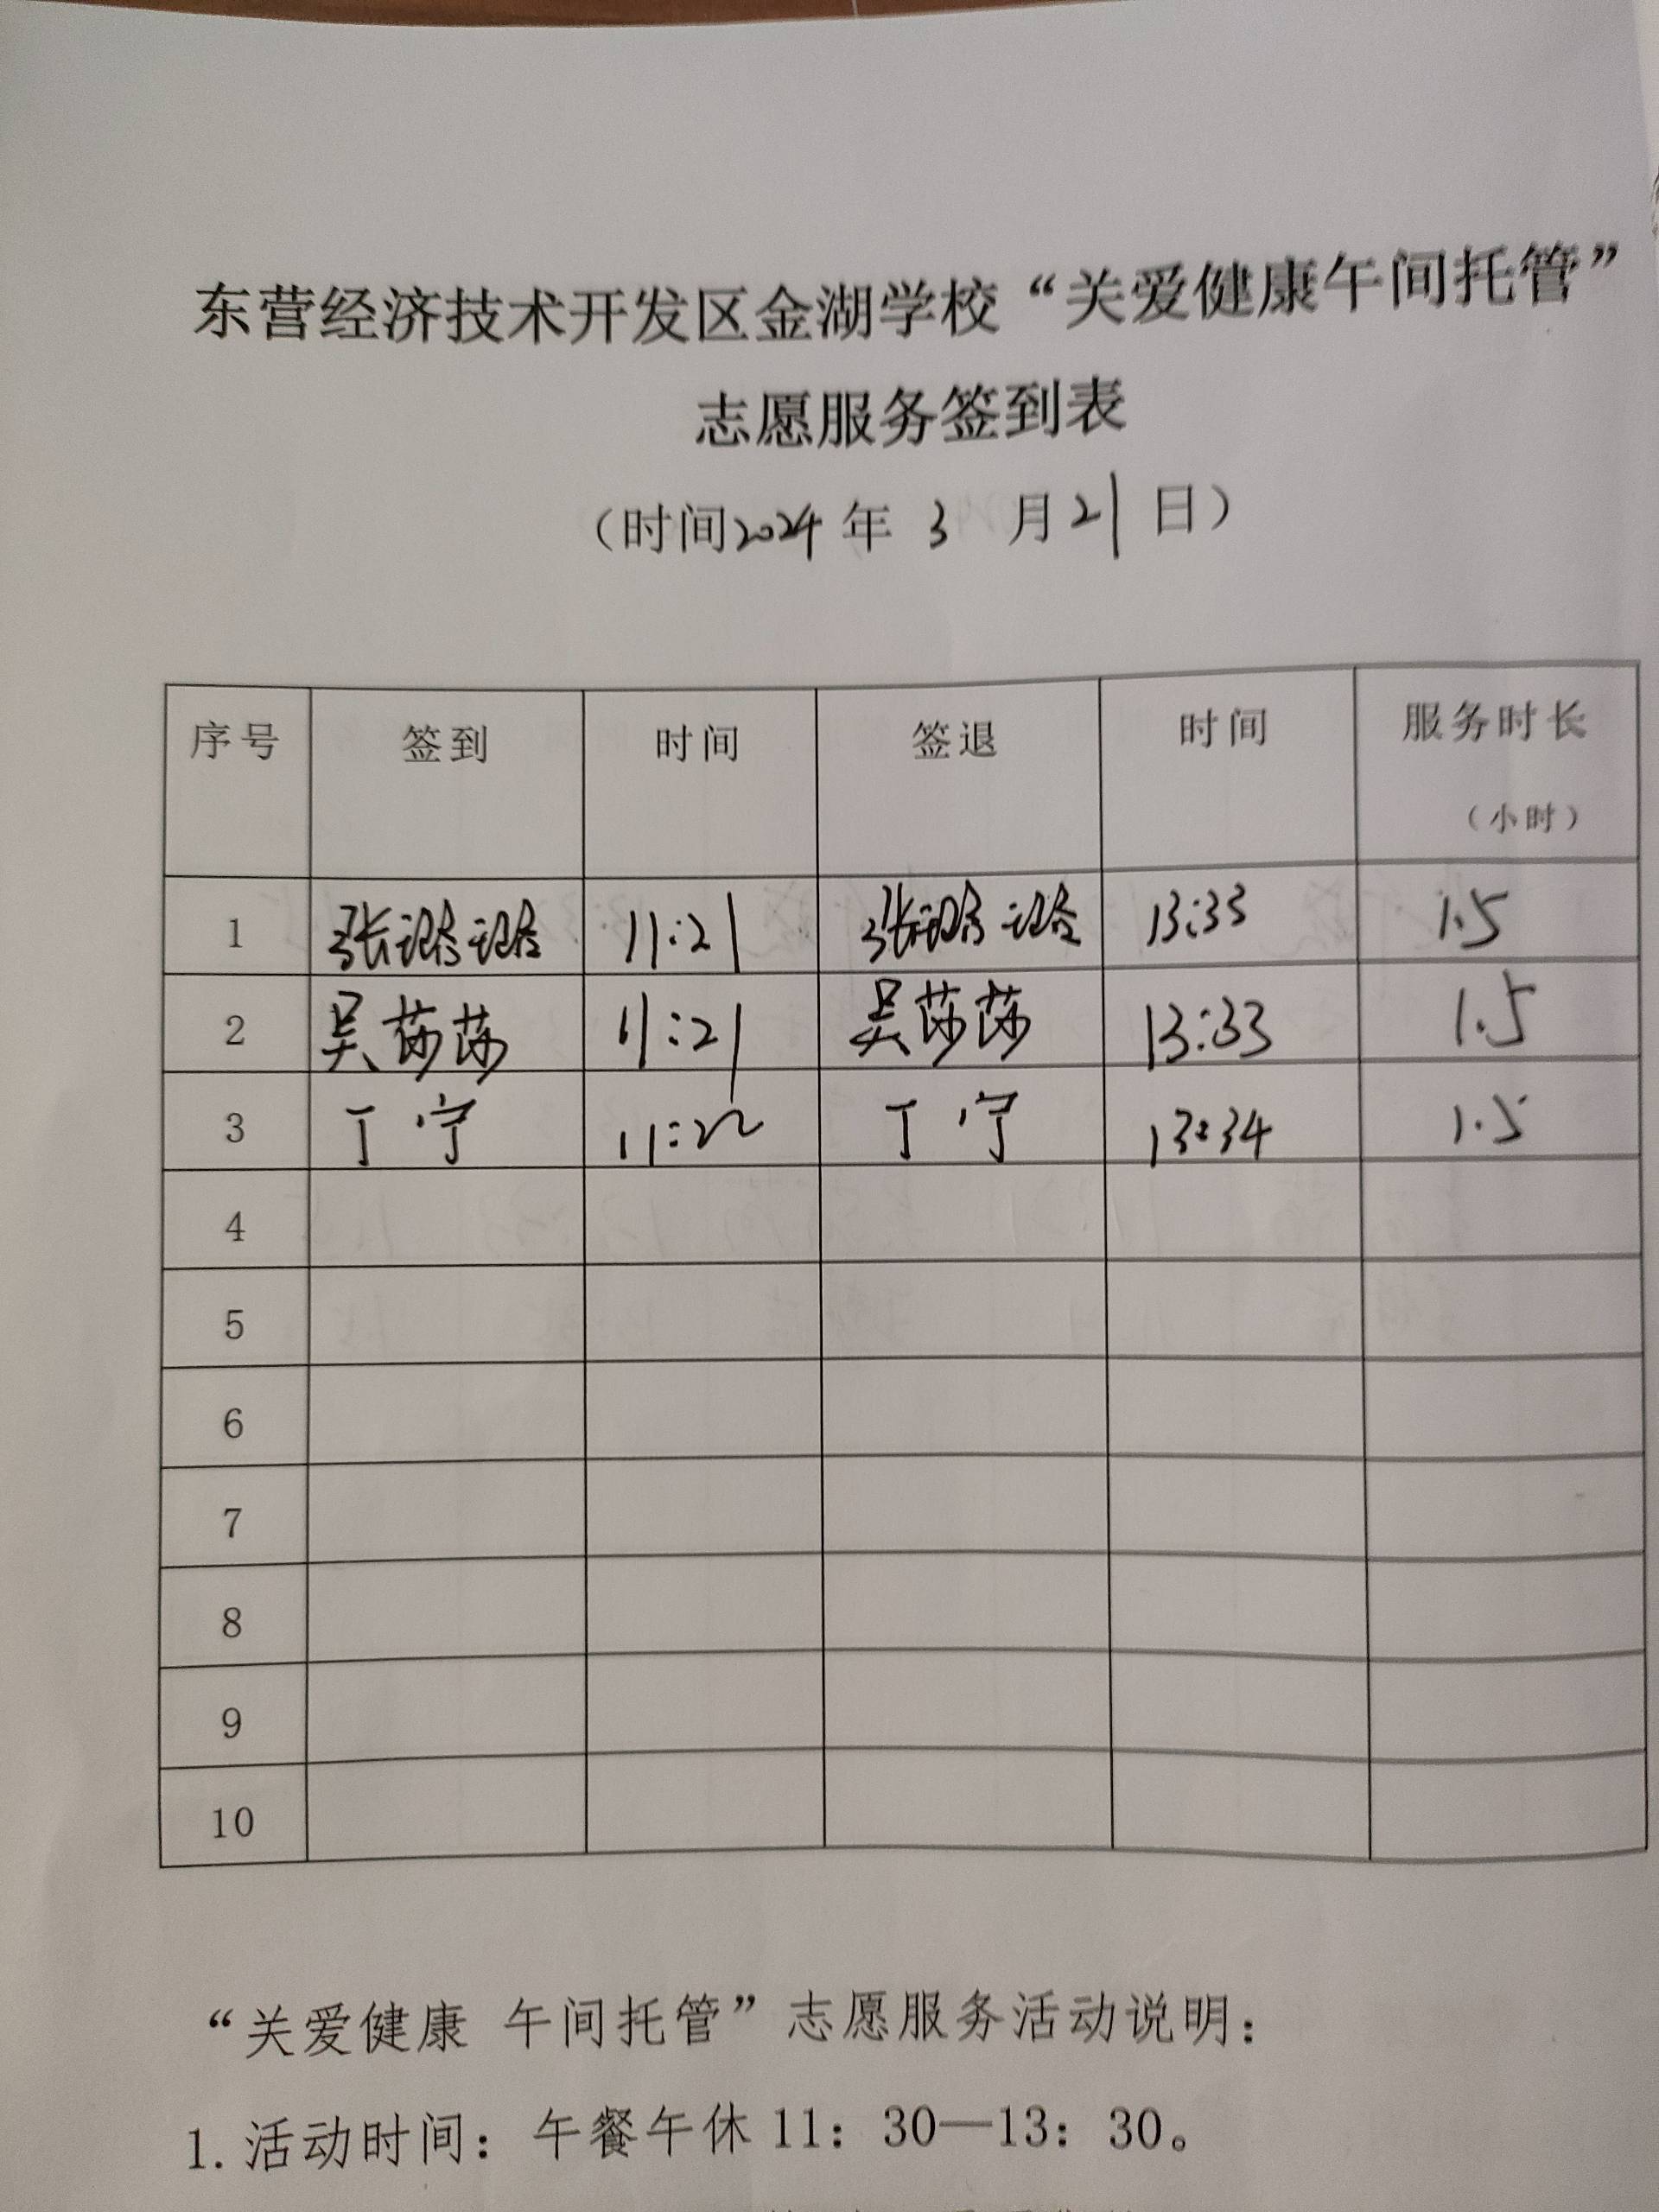 东营经济技术开发区金湖学校“关爱健康午间托管”
志愿服务签到表
（时间2024年 3 月21日）
序号 签到 时间 签退 时间 服务时长
（小时）
1 张 11:21 张 13:33 1.5
2 吴莎莎 11:21 吴莎莎 13:33 1.5
3 丁宁 11:22 丁宁 13:34 1.5
4
5
6
7
8
9
10
“关爱健康 午间托管”志愿服务活动说明：
1.活动时间：午餐午休11：30—13：30。